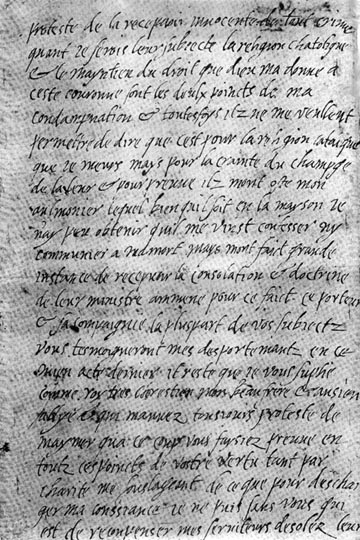 proteste de la recepvoir innocente de tout crime
quant je serois leur subjecte la religion chatolique
& le mayntien du droit que dieu ma donne a
ceste couronne sont les deulx poincts de ma
condampnation & toutesfoys ilz ne me veullent
permettre de dire que cest pour la religion catolique
que je meurs mays pour la crainte du champge
de la leur & pour preuve ilz mont oste mon
aulmonier lequel bien quil soit en la mayson je
nay peu obtenir quil me vinst confesser ny
communier a ma mort mays mont faict grande
instance de recepvoir la consolation & doctrine
de leur ministre ammene pour ce faict ce porteur
& sa compaignie la pluspart de vos subjectz
vous tesmoigneront mes desportemantz en ce
acte dernier il reste que je vous suplie
comme roy tres chrestien mon beau frere & ansien
allye & qui mauvez tousjours proteste de
maymer qua ce coup vous faysiez preuve en
toutz ces poincts de vostre vertu tant par
charite me souslageant de ce que pour deschar
ger ma conssiance je ne puis sans vous qui
est de recompenser mes serviteurs desolez leur